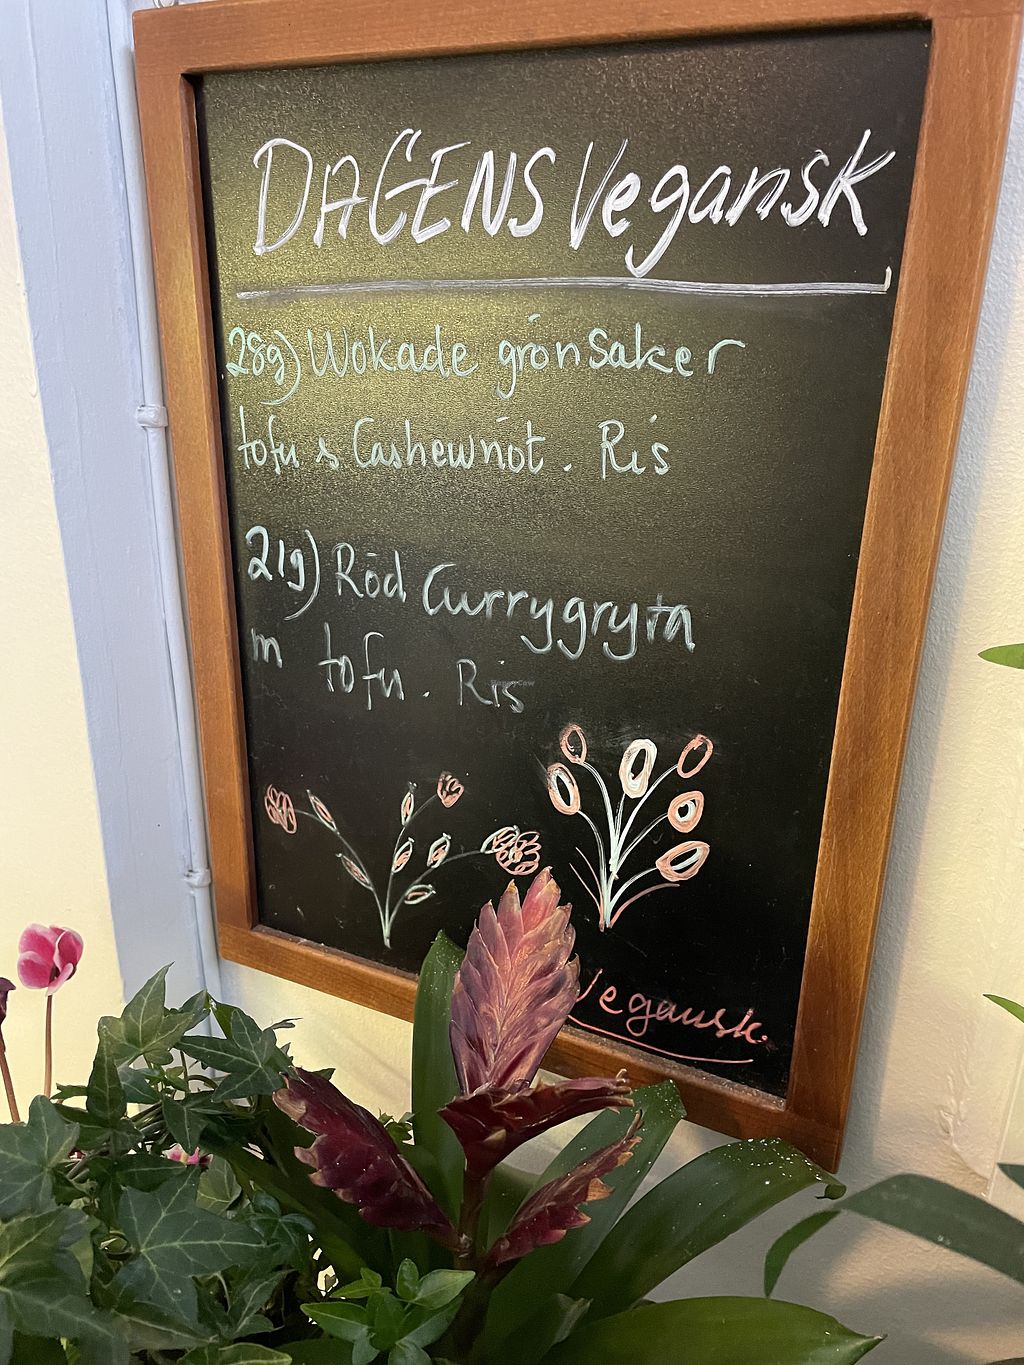 DAGENS Vegansk
28g) Wokade grönsaker
tofu & Cashewnöt. Ris
21g) Röd Currygryta
m tofu. Ris
Vegansk.